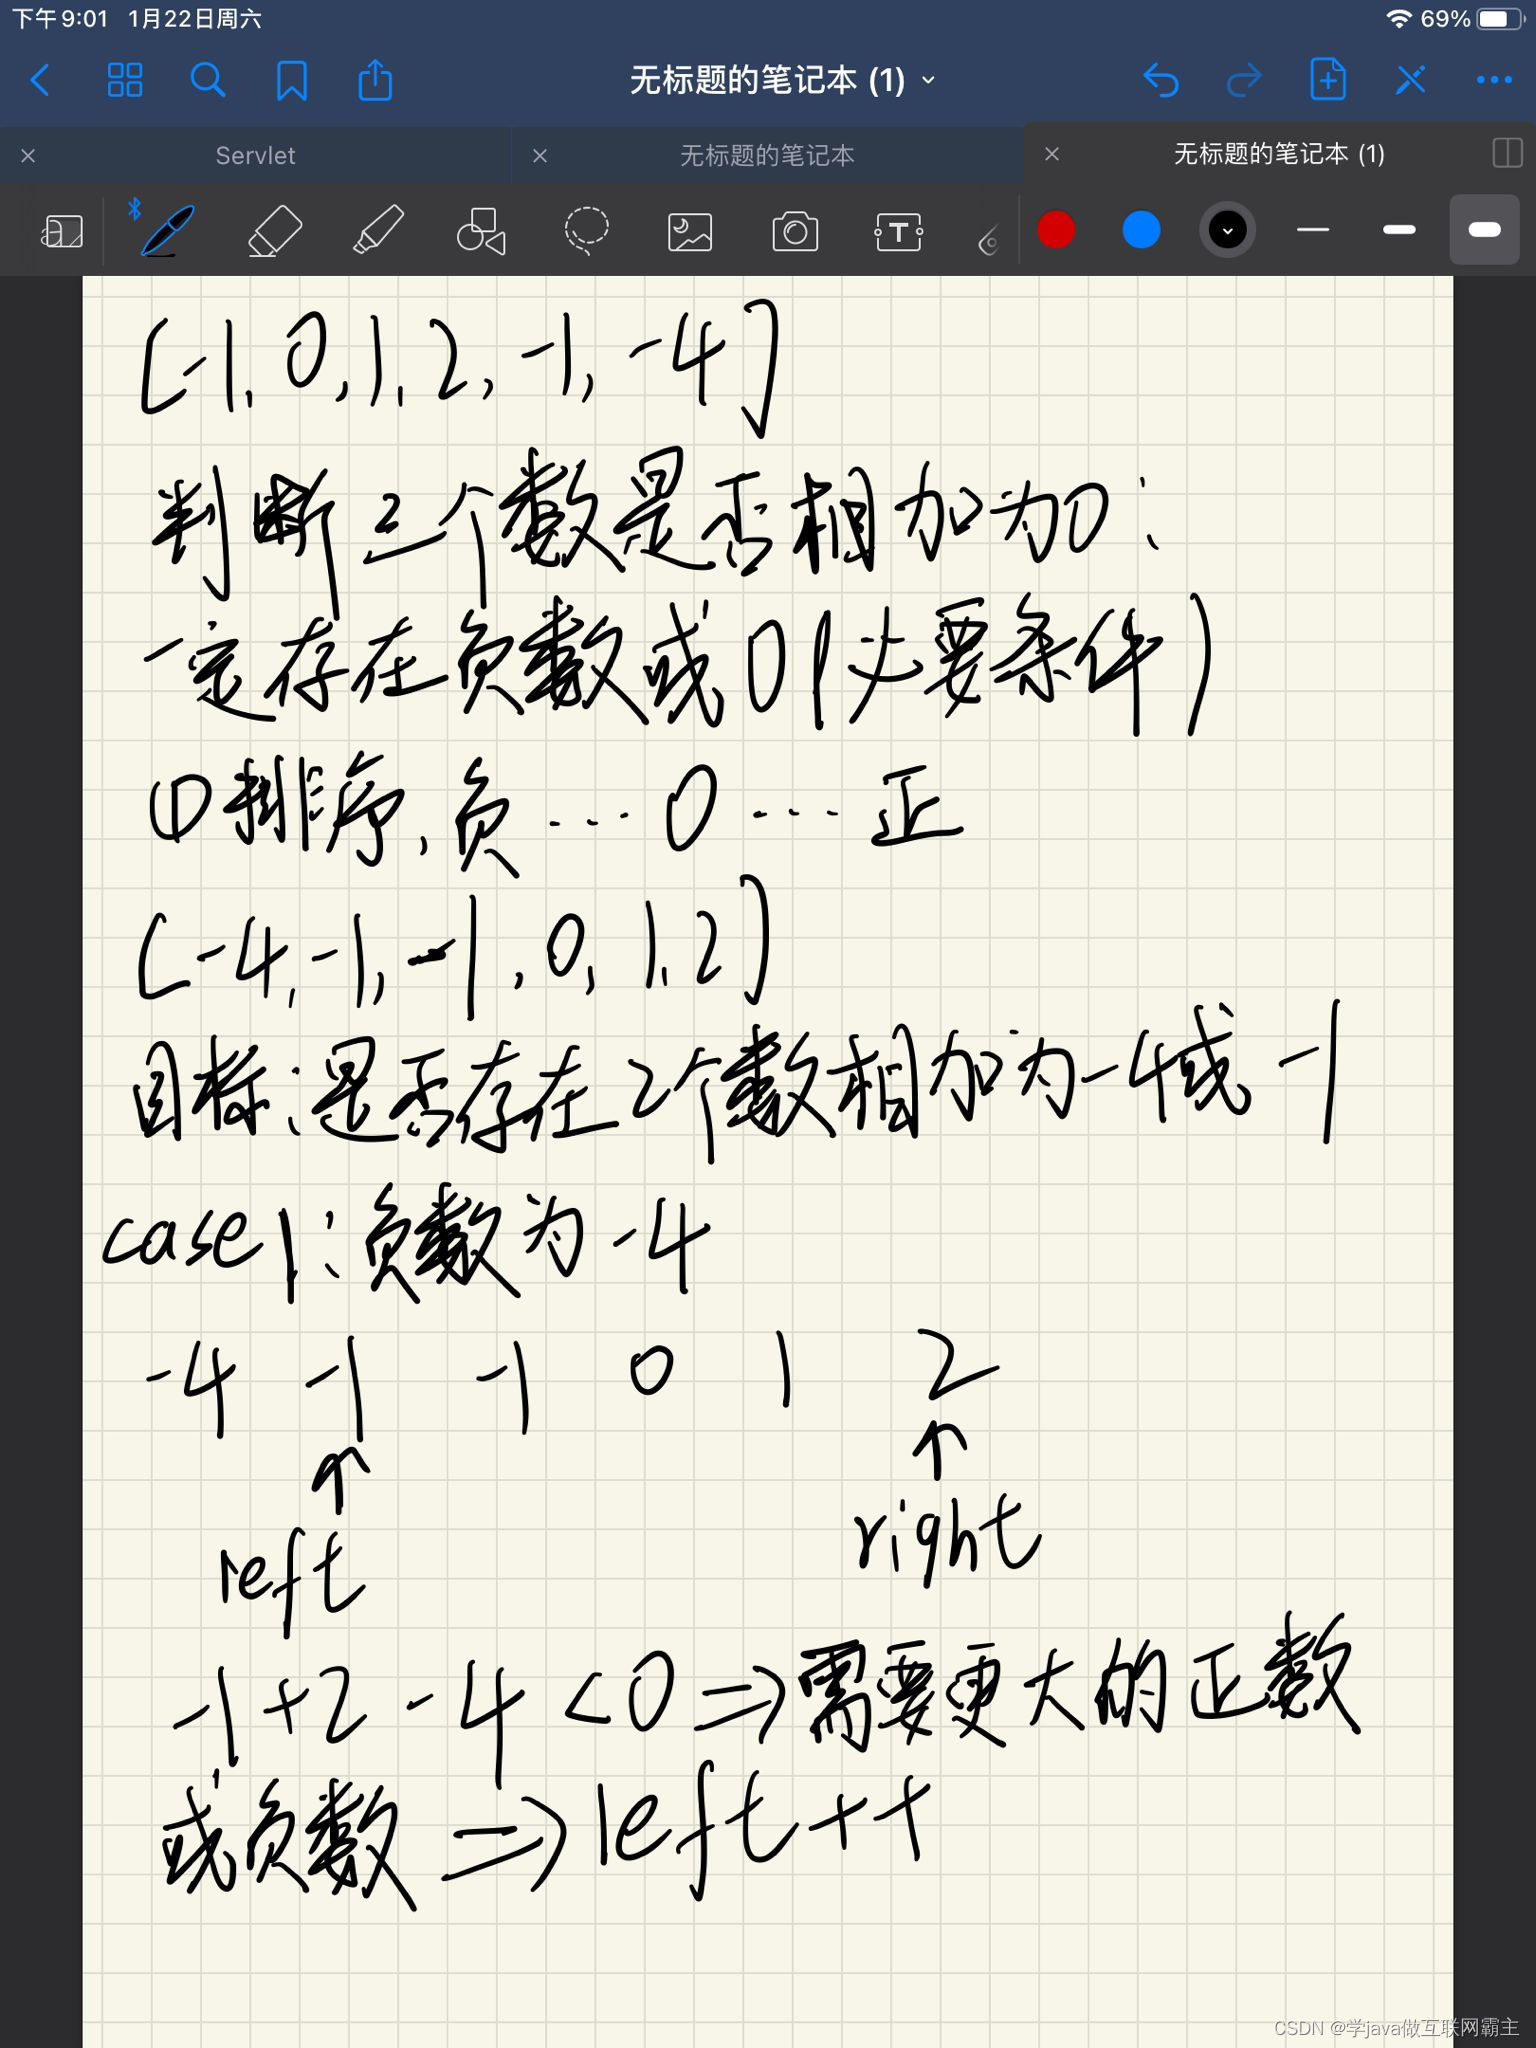 下午9:01 1月22日周六 69%
无标题的笔记本 (1)
Servlet 无标题的笔记本 无标题的笔记本 (1)
[-1,0,1,2,-1,-4]
判断三个数是否相加为0:
一定存在负数或0(必要条件)
①排序,负...0...正
[-4,-1,-1,0,1,2]
目标:是否存在2个数相加为-4或-1
case1:负数为-4
-4 -1 -1 0 1 2
↑ ↑
left right
-1+2-4<0⇒需要更大的正数
或负数⇒left++
CSDN @学java做互联网霸主